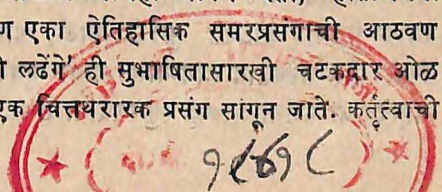 ण एका ऐतिहासिक समरप्रसंगाची आठवण
ी लढेंगे' ही सुभाषितासारखी चटकदार ओळ
एक चित्तथरारक प्रसंग सांगून जाते. कर्तृत्वाची